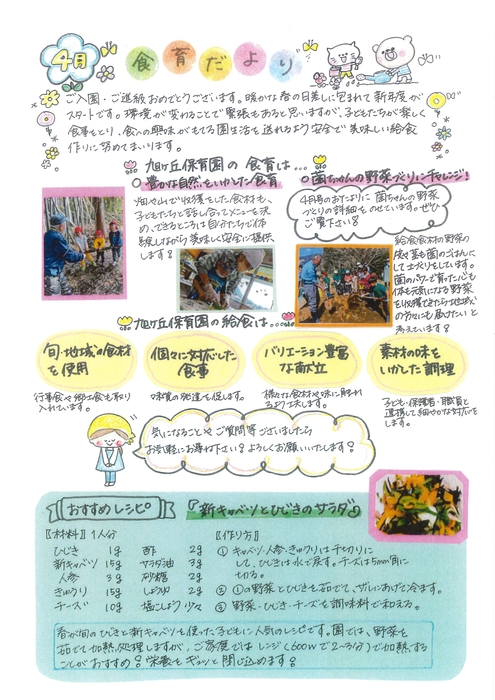 4月
食育だより
ご入園・ご進級おめでとうございます。暖かな春の日差しに包まれて新年度が
スタートです。環境が変わることで緊張もあると思いますが、子どもたちが楽しく
食事をとり、食への興味がもてる園生活を送れるよう安全で美味しい給食
作りに努めてまいります。
旭ヶ丘保育園の食育は…
○豊かな自然をいかした食育
畑や山で収穫をした食材も、
子どもたちと話し合ってメニューを決
め、できるところは自分たちで体
験しながら美味しく安全に提供
します!
○菌ちゃんの野菜づくりにチャレンジ!
4月号のおたよりに菌ちゃんの野菜
づくりの詳細をのせています。ぜひ
ご覧下さい!
給食食材の野菜の
皮や菜を菌のごはんに
して土づくりをしています。
菌のパワーで育った心も
体も元気になる野菜
を収穫できたら地域
の方々にも届けたいと
考えています!
旭ヶ丘保育園の給食は…
旬・地域の食材
を使用
行事食や郷土食も取り
入れています。
個々に対応した
食事
味覚の発達を促します。
バリエーション豊富
な献立
様々な食材や味に触れ
るよう工夫します。
素材の味を
いかした調理
子ども・保護者・職員と
連携して細やかな対応を
します。
気になることやご質問等ございましたら
お気軽にお尋ね下さい!よろしくお願いいたします!
おすすめレシピ
『新キャベツとひじきのサラダ』
〖材料〗1人分
ひじき 1g 酢 2g
新キャベツ 15g サラダ油 3g
人参 3g 砂糖 2g
きゅうり 15g しょうゆ 2g
チーズ 10g 塩こしょう 少々
〖作り方〗
① キャベツ・人参・きゅうりは千切りに
して、ひじきは水で戻す。チーズは5mm角に
切る。
② ①の野菜とひじきを茹でて、ザルにあげて冷ます。
③ 野菜・ひじき・チーズを調味料で和える。
春が旬のひじきと新キャベツを使った子どもに人気のレシピです。園では、野菜を
茹でて加熱処理しますが、ご家庭ではレンジ(600wで2~3分)で加熱する
ことがおすすめ!栄養をギュッと閉じ込めます!